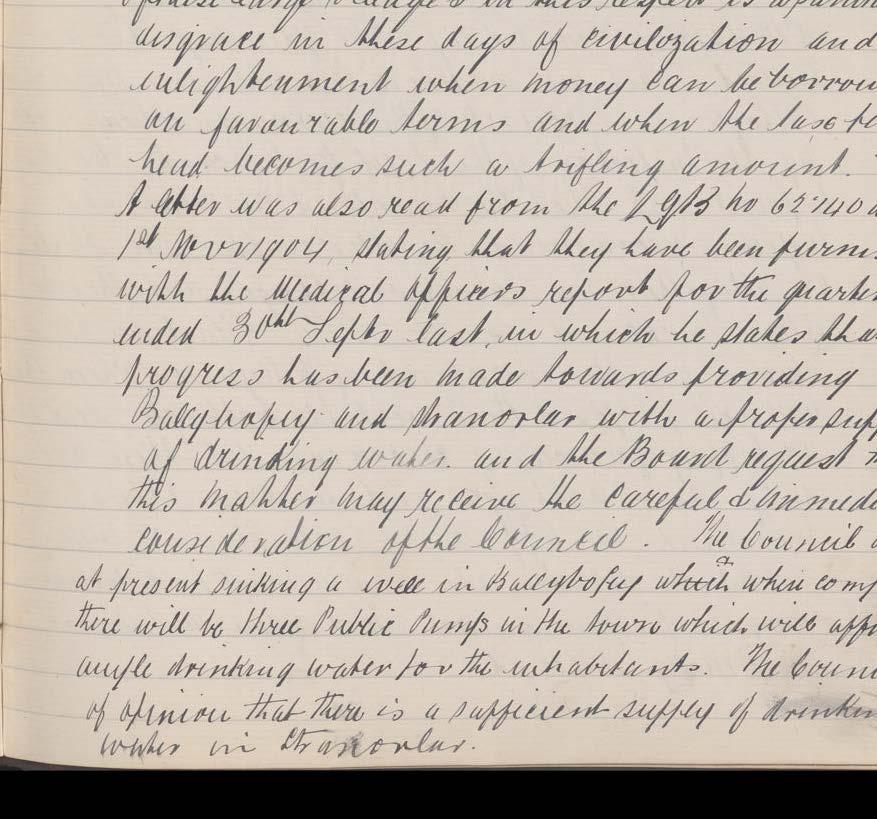 in this respect is a
disgrace in these days of civilization and
enlightenment when money can be borrow
on favourable terms and when the tax
head becomes such a trifling amount.
A letter was also read from the LGB No 62140
1st Novr 1904, stating that they have been furni
with the Medical Officers report for the quarter
ended 30th Septr last, in which he states tha
progress has been made towards providing
Ballybofey and Stranorlar with a proper supp
of drinking water. and the Board request
this matter may receive the careful & immedi
consideration of the Council. The Council
at present sinking a well in Ballybofey which when comp
there will be three Public Pumps in the town which will affo
ample drinking water for the inhabitants. The Counc
of opinion that there is a sufficient supply of drinkin
water in Stranorlar.